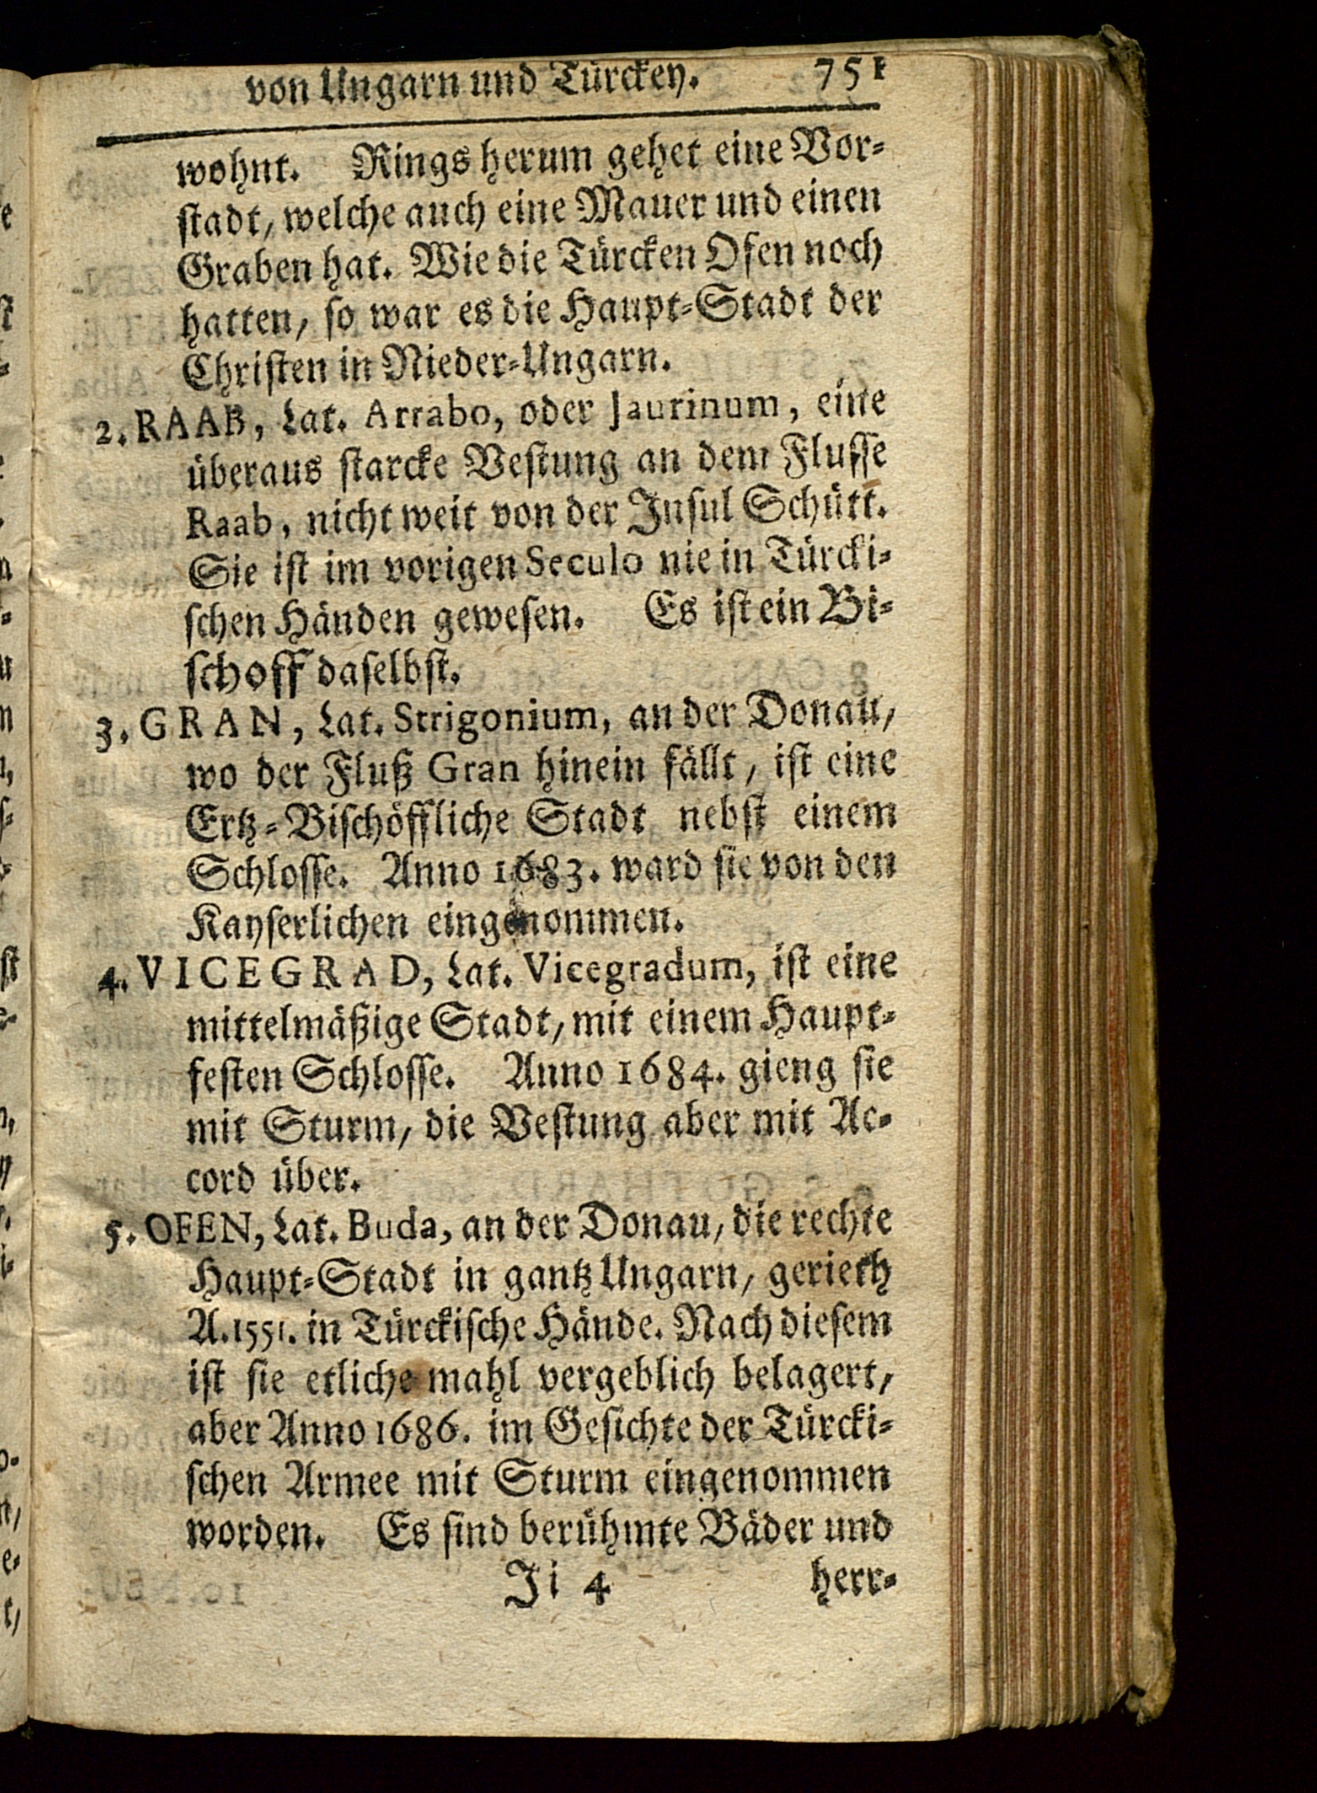 von Ungarn und Türckey. 751
wohnt. Rings herum gehet eine Vor-
stadt, welche auch eine Mauer und einen
Graben hat. Wie die Türcken Ofen noch
hatten, so war es die Haupt-Stadt der
Christen in Nieder-Ungarn.
2. RAAB, Lat. Arrabo, oder Jaurinum, eine
überaus starcke Vestung an dem Flusse
Raab, nicht weit von der Insul Schütt.
Sie ist im vorigen Seculo nie in Türcki-
schen Händen gewesen. Es ist ein Bi-
schoff daselbst.
3. GRAN, Lat. Strigonium, an der Donau,
wo der Fluß Gran hinein fällt, ist eine
Ertz-Bischöffliche Stadt nebst einem
Schlosse. Anno 1683. ward sie von den
Kayserlichen eingenommen.
4. VICEGRAD, Lat. Vicegradum, ist eine
mittelmäßige Stadt, mit einem Haupt-
festen Schlosse. Anno 1684. gieng sie
mit Sturm, die Vestung aber mit Ac-
cord über.
5. OFEN, Lat. Buda, an der Donau, die rechte
Haupt-Stadt in gantz Ungarn, gerieth
A. 1551. in Türckische Hände. Nach diesem
ist sie etliche mahl vergeblich belagert,
aber Anno 1686. im Gesichte der Türcki-
schen Armee mit Sturm eingenommen
worden. Es sind berühmte Bäder und
Ji 4 herr-